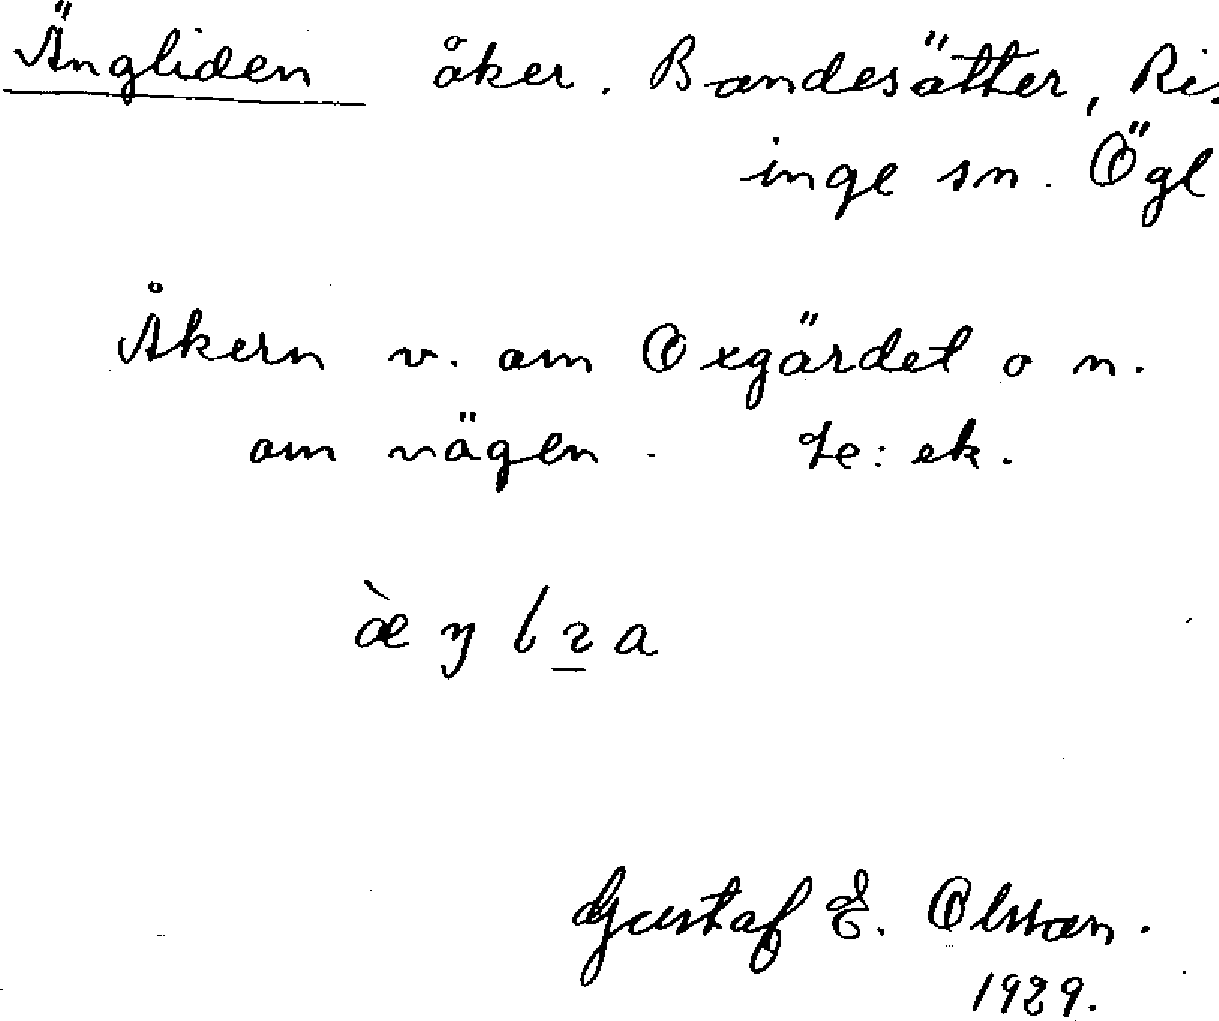 Ängliden åker. Bandesätter, Ris
inge sn. Ögl
Åkern v. om Oxgärdet o n.
om vägen. Le: ek.
Gustaf E. Olsson.
1929.